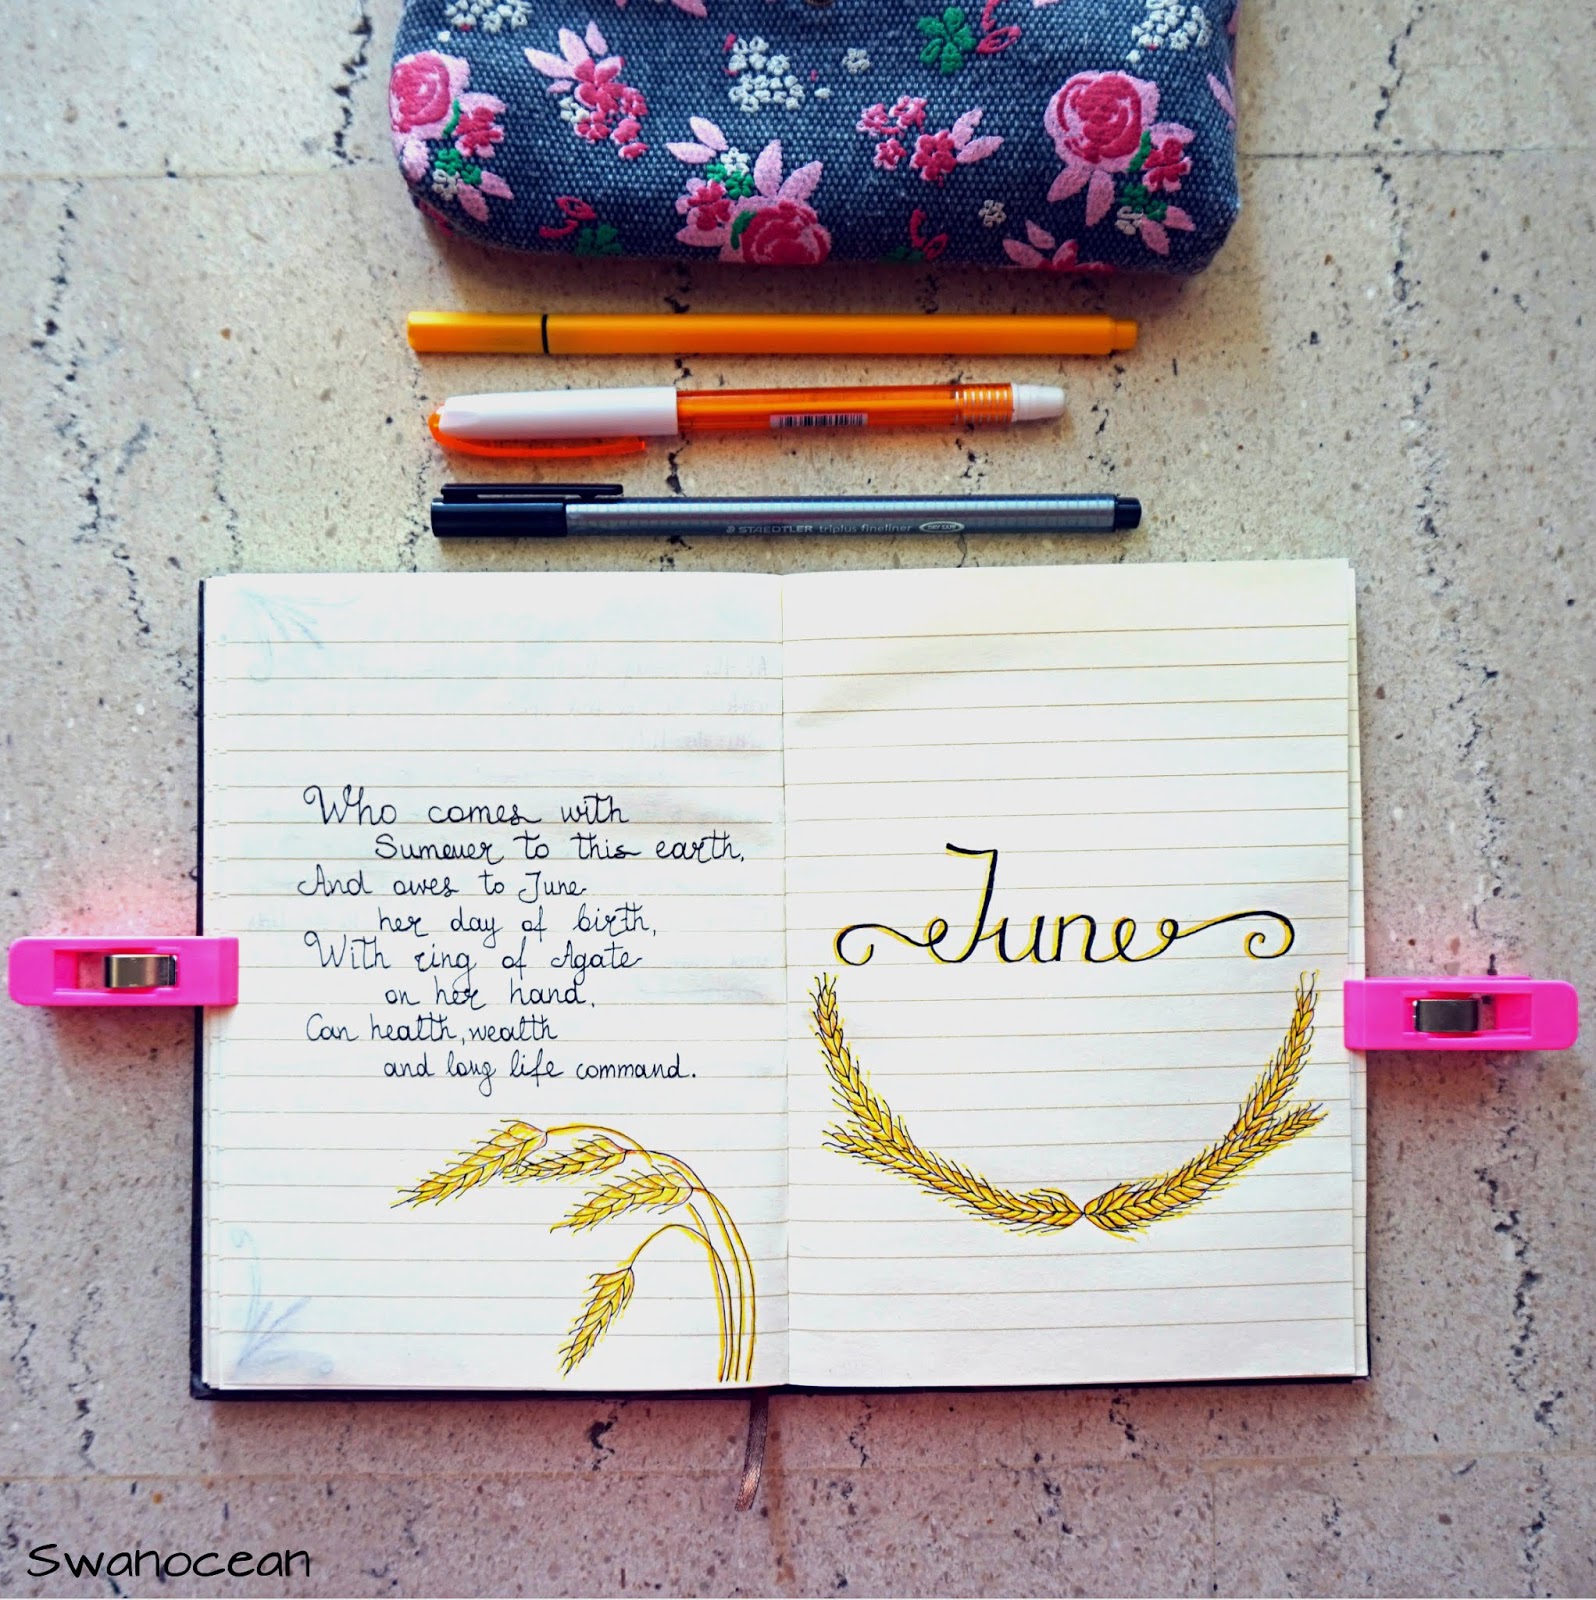 STAEDTLER triplus fineliner
Who comes with
Summer to this earth,
And owes to June
her day of birth,
With ring of Agate
on her hand,
Can health, wealth
and long life command.
June
Swanocean